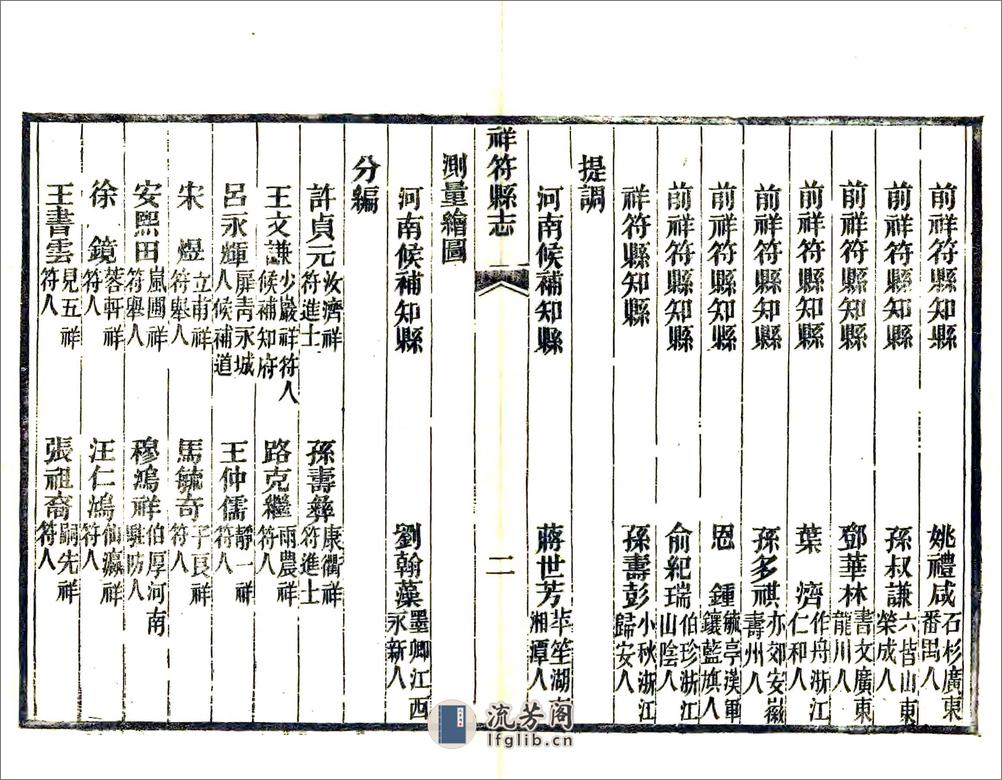 前祥符縣知縣 姚禮咸 石杉廣東番禺人
前祥符縣知縣 孫叔謙 六皆山東榮成人
前祥符縣知縣 鄧華林 書文廣東龍川人
前祥符縣知縣 葉濟 作丹浙江仁和人
前祥符縣知縣 孫多祺 亦郊安徽壽州人
前祥符縣知縣 恩鍾 毓亭漢軍鑲藍旗人
前祥符縣知縣 俞紀瑞 伯珍浙江山陰人
祥符縣知縣 孫壽彭 小秋浙江歸安人
提調
河南候補知縣 蔣世芳 苹笙湖湘潭人
祥符縣志 二
測量繪圖
河南候補知縣 劉翰藻 墨卿江西永新人
分編
許貞元 汝濟祥符進士 孫壽彝 康衢祥符進士
王文謙 少巖祥符人候補知府 路克繼 雨農祥符人
呂永輝 扉青永城人候補道 王仲儒 靜一祥符人
宋煜 立甫祥符舉人 馬毓奇 子良祥符人
安熙田 嵐圃祥符舉人 穆鴻祥 伯厚河南駐防人
徐鏡 蓉軒祥符人 汪仁鴻 仙瀛祥符人
王書雲 見五祥符人 張祖裔 嗣先祥符人
流芳阁
lfglib.cn